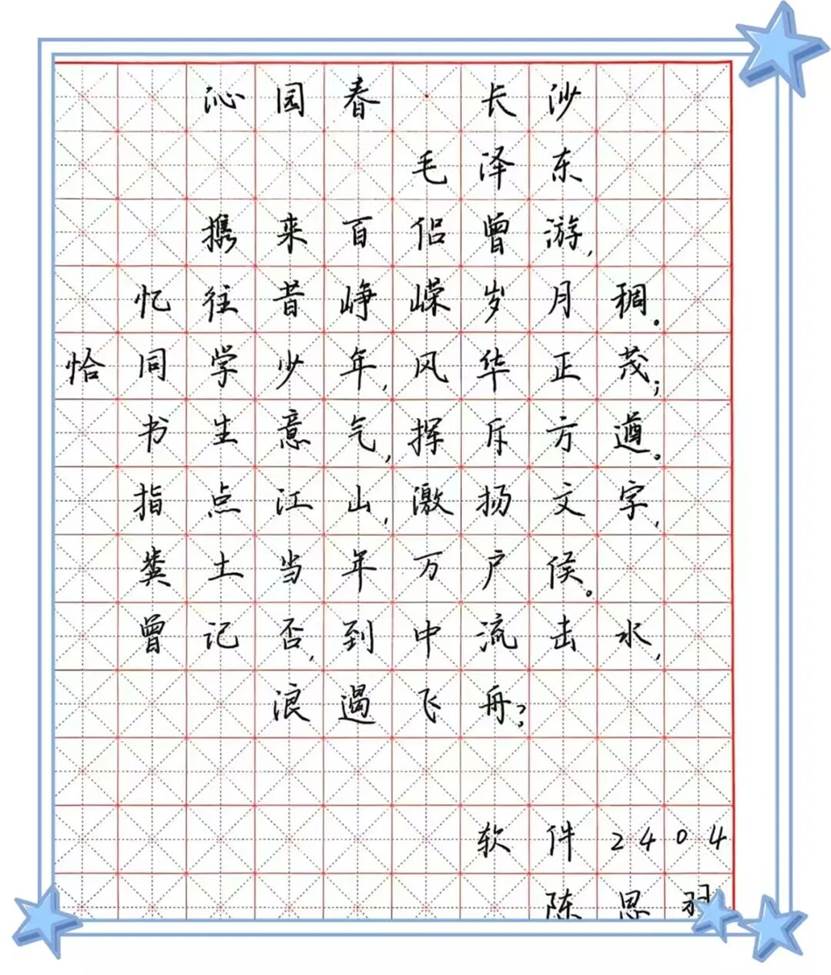 沁园春·长沙
毛泽东
携来百侣曾游,
忆往昔峥嵘岁月稠。
恰同学少年,风华正茂;
书生意气,挥斥方遒。
指点江山,激扬文字,
粪土当年万户侯。
曾记否,到中流击水,
浪遏飞舟?
软件2404
陈思羽